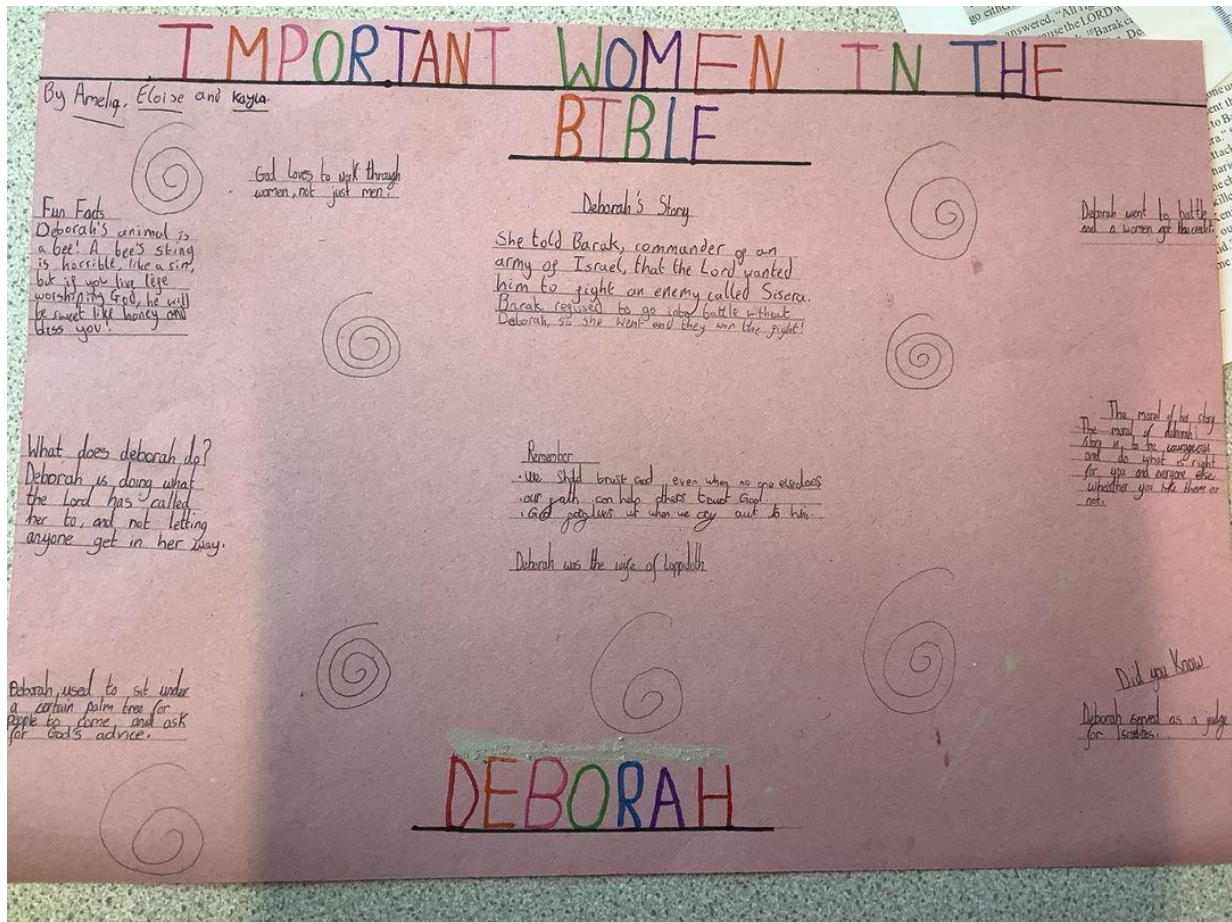 IMPORTANT WOMEN IN THE
BIBLE
By Amelia, Eloise and Kayla.
God loves to work through
women, not just men!
Fun Facts
Deborah's animal is
a bee! A bee's sting
is horrible, like a sin,
but if you live life
worshiping God, he will
be sweet like honey and
bless you!
Deborah's Story
She told Barak, commander of an
army of Israel, that the Lord wanted
him to fight an enemy called Sisera.
Barak refused to go into battle without
Deborah, so she went and they won the fight!
Deborah went to battle
and a women got the credit.
What does deborah do?
Deborah is doing what
the Lord has called
her to, and not letting
anyone get in her way.
Remember
. we should trust God even when no one else does
. our faith can help others trust God
. God forgives us when we cry out to him.
Deborah was the wife of Lappidoth
The moral of her story
The moral of deborah's
story is to be courageous
and do what is right
for you and everyone else
wheather you like them or
not.
Deborah used to sit under
a certain palm tree for
people to come and ask
for God's advice.
Did you Know
Deborah served as a judge
for Israelites.
DEBORAH
go
answered, "All
because the LORD
Barak